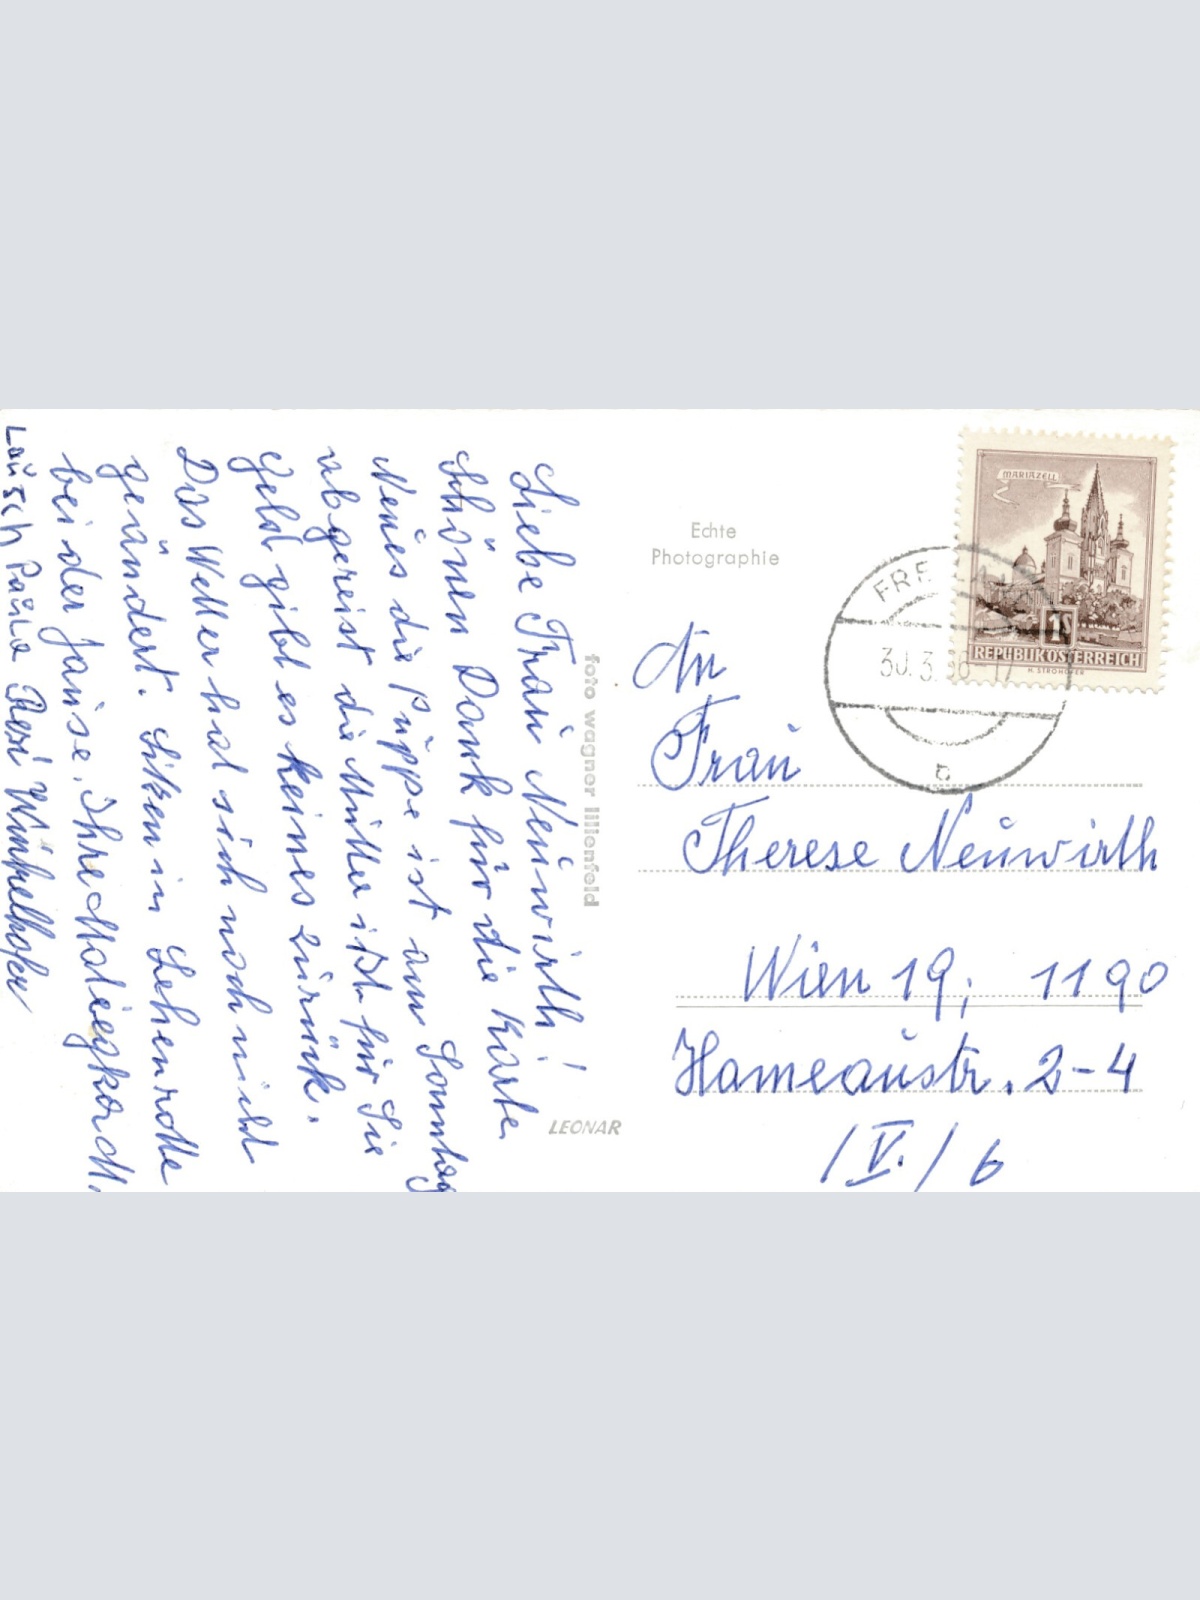 Liebe Frau Neuwirth!
Schönen Dank für die Karte.
Neues die Puppe ist am Sonntag
abgereist die Mitta ist für Sie
Geld gibt es keines zurück.
Das Wetter hat sich noch nicht
geändert. Sitzen in Lehenrotte
bei der Jause. Ihre
Paula Resi Winkelhofer
foto wagner lilienfeld
LEONAR
Echte
Photographie
MARIAZELL
1S
REPUBLIK ÖSTERREICH
H. STROHOFER
30.3.
An
Frau
Therese Neuwirth
Wien 19, 1190
Hameaustr. 2-4
/V./6